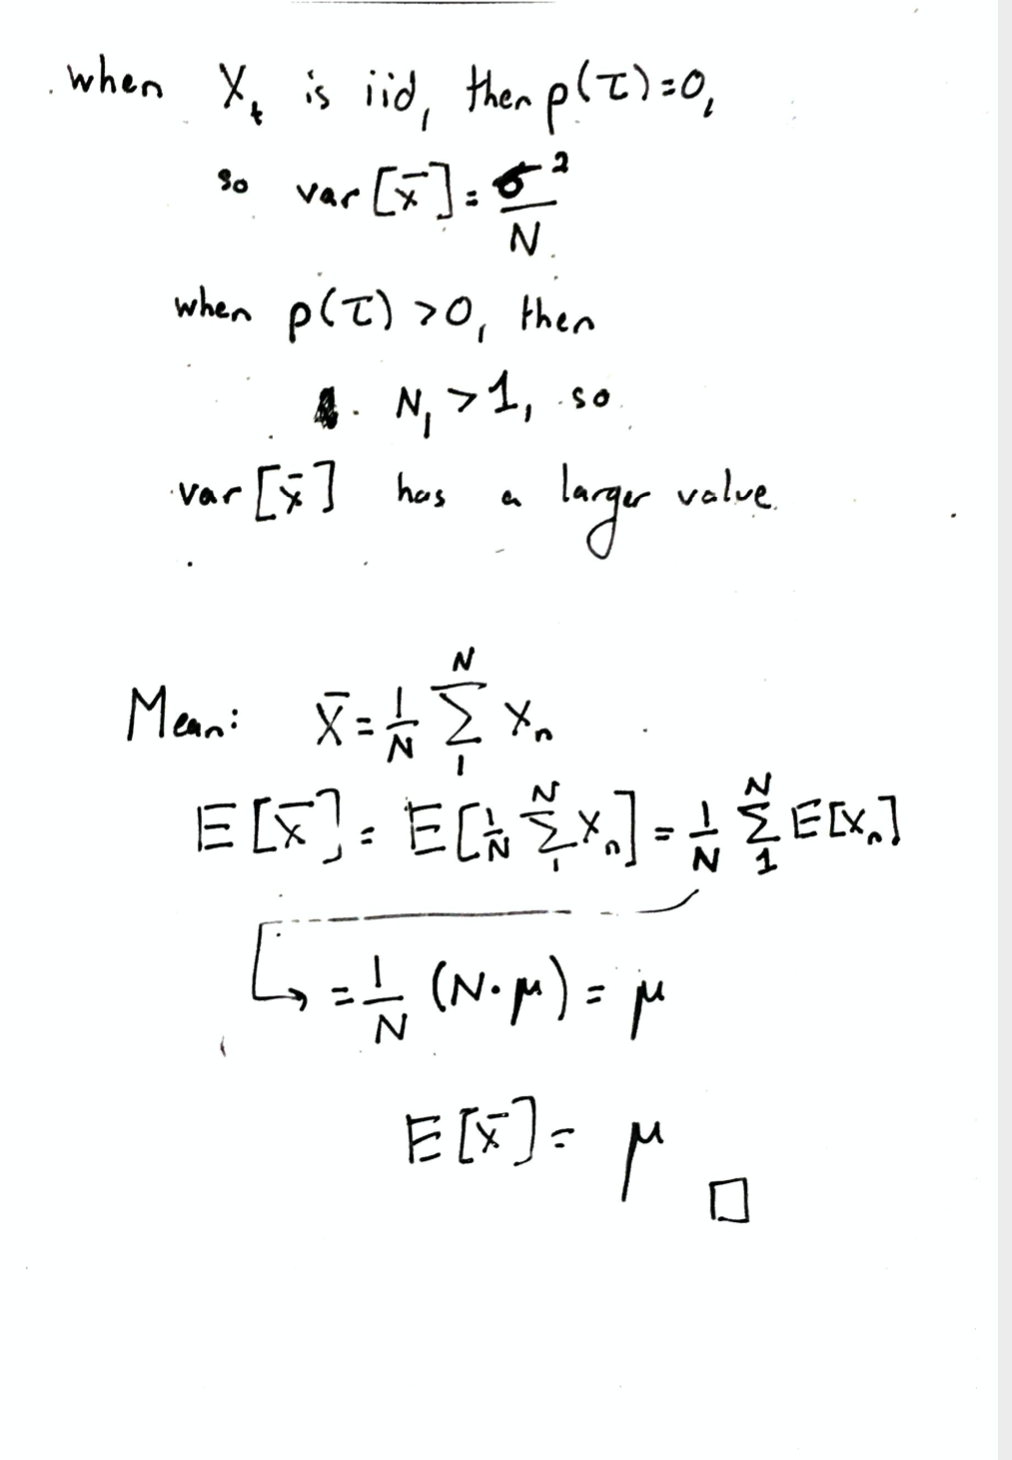 when Xₜ is iid, then ρ(τ)=0,
so var[x̄] = σ²/N
when ρ(τ) >0, then
N₁ >1, so
var[x̄] has a larger value.
Mean: X̄ = 1/N Σ₁ᴺ Xₙ
E[X̄] = E[1/N Σ₁ᴺ Xₙ] = 1/N Σ₁ᴺ E[Xₙ]
↳ = 1/N (N·μ) = μ
E[x̄] = μ □